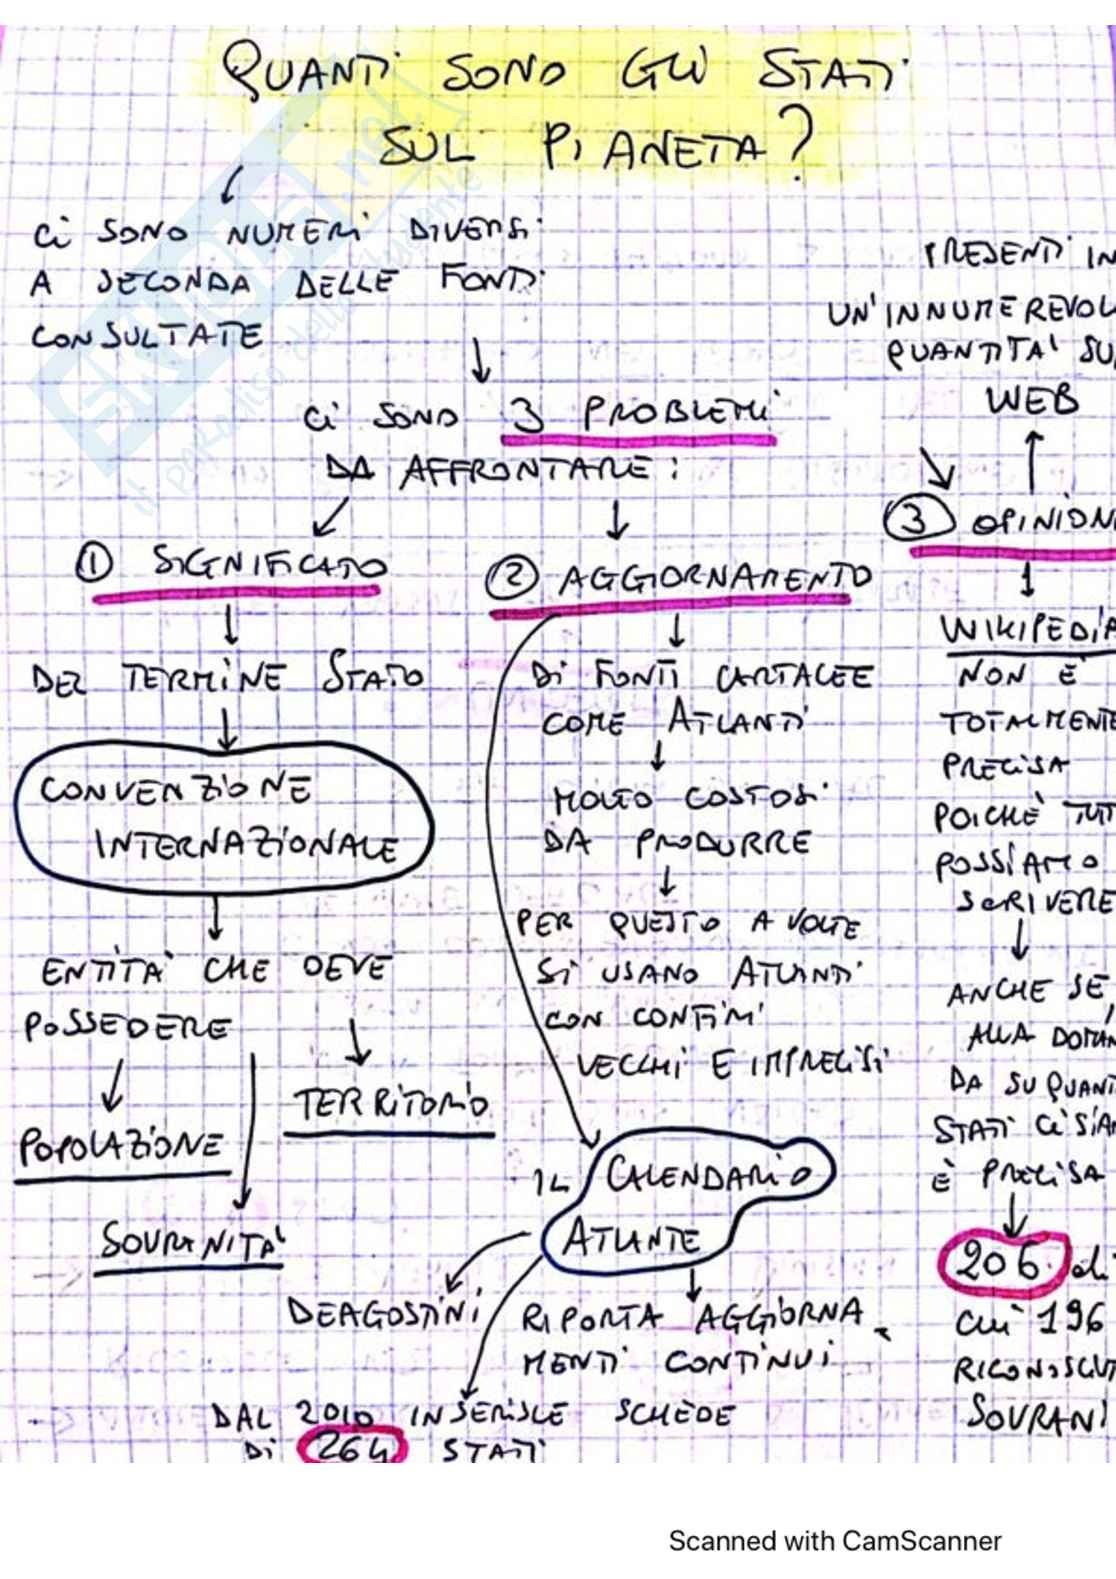 QUANTI SONO GLI STATI
SUL PIANETA?
CI SONO NUMERI DIVERSI
A SECONDA DELLE FONTI
CONSULTATE
CI SONO 3 PROBLEMI
DA AFFRONTARE:
① SIGNIFICATO
DEL TERMINE STATO
CONVENZIONE
INTERNAZIONALE
ENTITA' CHE DEVE
POSSEDERE
POPOLAZIONE
TERRITORIO
SOVRANITA'
② AGGIORNAMENTO
DI FONTI CARTACEE
COME ATLANTI
MOLTO COSTOSI
DA PRODURRE
PER QUESTO A VOLTE
SI USANO ATLANTI
CON CONFINI
VECCHI E IMPRECISI
IL CALENDARIO
ATLANTE
DEAGOSTINI
RIPORTA AGGIORNA
MENTI CONTINUI
DAL 2010 INSERISCE SCHEDE
DI 264 STATI
PRESENTI IN
UN'INNUMEREVOL
QUANTITA' SU
WEB
③ OPINION
WIKIPEDIA
NON È
TOTALMENTE
PRECISA
POICHÈ TUT
POSSIAMO
SCRIVERE
ANCHE SE
ALLA DOMAN
DA SU QUANT
STATI CI SIA
È PRECISA
206 di
cui 196
RICONOSCIUT
SOVRANI
SKUOLA.net
il paradiso dello studente
Scanned with CamScanner